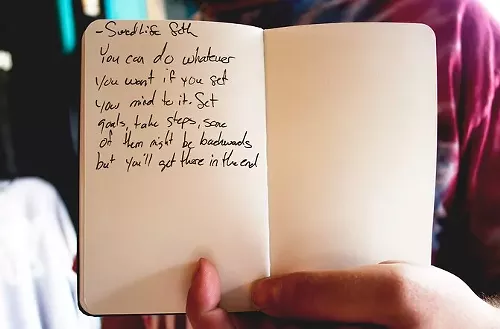 - Swedlife Seth
You can do whatever
you want if you set
your mind to it. Set
goals, take steps, some
of them might be backwards
but you'll get there in the end